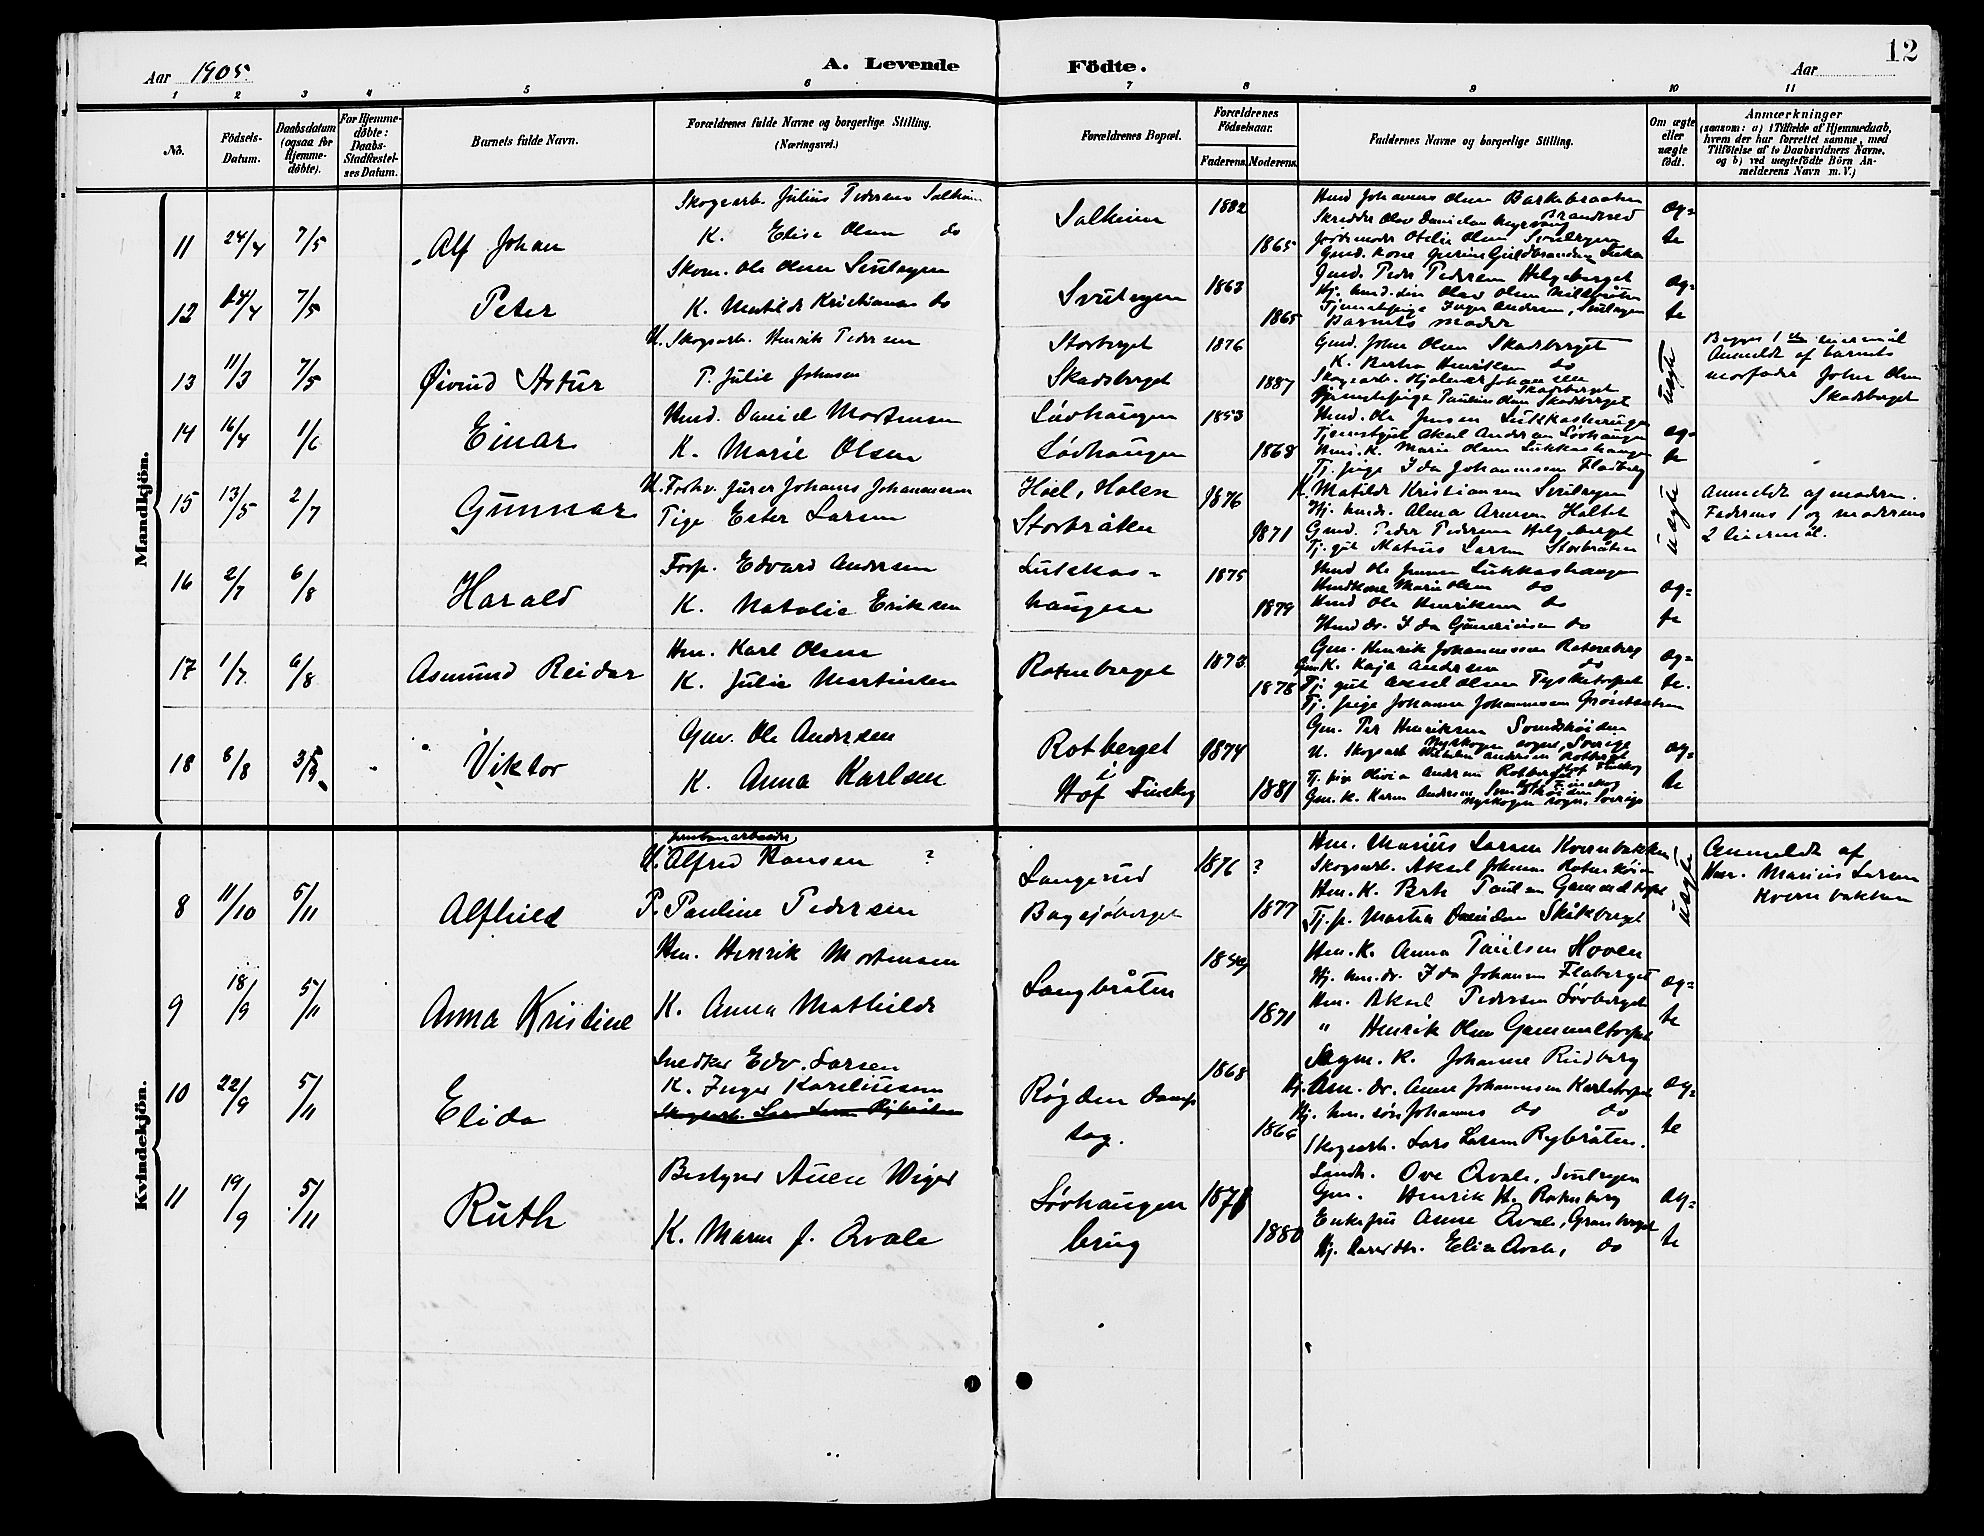 12
Aar 1905
A. Levende Födte.
Aar
1 2 3 4 5 6 7 8 9 10 11
No.
Födsels-Datum.
Daabsdatum (ogsaa for Hjemme-döbte).
For Hjemme-döbte: Daabs-Stadfæstel-ses Datum.
Barnets fulde Navn.
Forældrenes fulde Navne og borgerlige Stilling. (Næringsvei.)
Forældrenes Bopæl.
Forældrenes Födselsaar.
Faderens. Moderens.
Faddernes Navne og borgerlige Stilling.
Om ægte eller uægte födt.
Anmærkninger
(saasom: a) i Tilfælde af Hjemmedaab,
hvem der har forrettet samme, med
Tilföielse af to Daabsvidners Navne,
og b) ved uægtefödte Börn An-
melderens Navn m. V.)
Mandkjön.
11 24/4 7/5 Alf Johan
Skogsarb. Julius Pedersen Salheim
K. Elise Olsen do
Salheim
1882
1865
æg=
te
12 24/4 7/5 Peter
Skom. Ole Olsen Svulrygen
K. Matilde Kristiansen do
Svulrygen
1863
1865
Gmd. Peder Pedersen Helgeberget
Tjenestepige Inger Andersen, Svulrygen
Barnets moder
æg=
te
13 11/3 7/5 Øivind Artur
U. Skogsarb. Henrik Pedersen
P. Julie Johnsen
Storberget
Skadsberget
1876
1887
Gmd. John Olsen Skadsberget
K. Berthe Henriksen do
Skogsarb. Hjalmar Johansen
Skadsberget
Tjenestepige Pauline Olsen Skadsberget
uægte
Begges 1ste leiermål
Anmeldt af barnets
morfader John Olsen
Skadsberget
14 16/4 1/6 Einar
Hmd. Daniel Mortensen
K. Marie Olsen
Løvhaugen
Løvhaugen
1853
1868
Hmd. Ole Jensen Lukkashaugen
Tjenestegut Aksel Andersen Løvhaugen
Hus. K. Marie Olsen Lukkashaugen
Tj. pige Ida Johannesen Flaberg
æg=
te
15 13/5 2/7 Gunnar
U. Forhv. furer Johans Johannesen
Pige Ester Larsen
Hoel, Holen
Storbråten
1876
1871
K. Matilde Kristiansen Svulrygen
Hj. hmdr. Alma Arnesen Holtet
Gmd. Peder Pedersen Helgeberget
Tj. gut Matius Larsen Storbråten
uægte
Anmeldt af moderen.
Faderens 1 og moderens
2 leiermål.
16 2/7 6/8 Harald
Forp. Edvard Andersen
K. Natalie Eriksen
Lukkas-
haugen
1875
1879
Hmd Ole Jensen Lukkashaugen
Hmdkone Marie Olsen do
Hmd Ole Henriksen do
Hmd dr. Ida Gunerisen do
æg=
te
17 1/7 6/8 Asmund Reidar
Hm. Karl Olsen
K. Julie Martinsen
Rotneberget
1873
1878
Gm. Henrik Johannessen Rotneberg
Gm K. Kaja Andersen do
Tj. gut Aksel Olsen Tysketorpet
Tj. pige Johanne Johannessen Grønsæteren
æg=
te.
18 6/8 3/9 Viktor
Gm. Ole Andersen
K. Anna Karlsen
Rotberget
i
Hof Finskog
1874
1881
Gm. Per Henriksen Svendshöiden
Nyskogen sogn, Sverige
U. Skogsarb Wilhelm Andersen Rotberget
Hof Finskog
Tj. pige Olivia Andersen Rotberget
Hof Finskog
Gm. K. Karen Andersen Svendshöiden
Nyskogen sogn, Sverige
æg=
te
Kvindekjön.
8 11/10 5/11 Alfhild
jernbanearbeider
U. Alfred Hansen ?
P. Pauline Pedersen
Langerud
Bagsjøberget
1876 ?
1877
Hm. Marius Larsen Kvernbakken
Skogsarb. Aksel Johnsen
Hm. K. Berte Paulsen Gammeltorpet
Tj. p. Martha Skåkberget
uægte
Anmeldt af
Hm. Marius Larsen
Kvernbakken
9 18/9 5/11 Anna Kristine
Hm. Henrik Mortensen
K. Anna Mathilde
Langbråten
1871
Hm. K. Anna Paulsen Hoven
Hj. hm. dr. Ida Johansen Flaberget
Hm. Aksel Pedersen Løvberget
" Henrik Olsen Gammeltorpet
æg=
te
10 22/9 5/11 Elida
Snedker Edv. Larsen
K. Inger Karoliusen
Skogsarb. Lars Larsen Rybråten
Røgden Damp
sag.
1868
1866
Sagm. K. Johanne Rudberg
Hj. hm. dr. Anne Johannesen Karlstorpet
Hj. hm. søn Johannes do do
Skogsarb. Lars Larsen Rybråten.
æg=
te
11 19/9 5/11 Ruth
Bestyrer Auen Wiger
K. Maren J. Qvale
Løvhaugen
brug
1878
1880
Landh. Ove Qvale, Svulrygen
Gm. Henrik H. Rotneberg
Enkefru Anne Qvale, Granberget
Hj. Elise Qvale, do
æg=
te